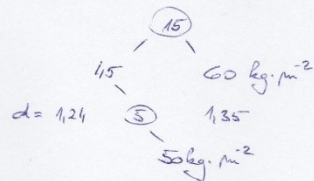 15
4,5 60 kg.m⁻²
d= 1,24 5 1,35
50kg.m⁻²